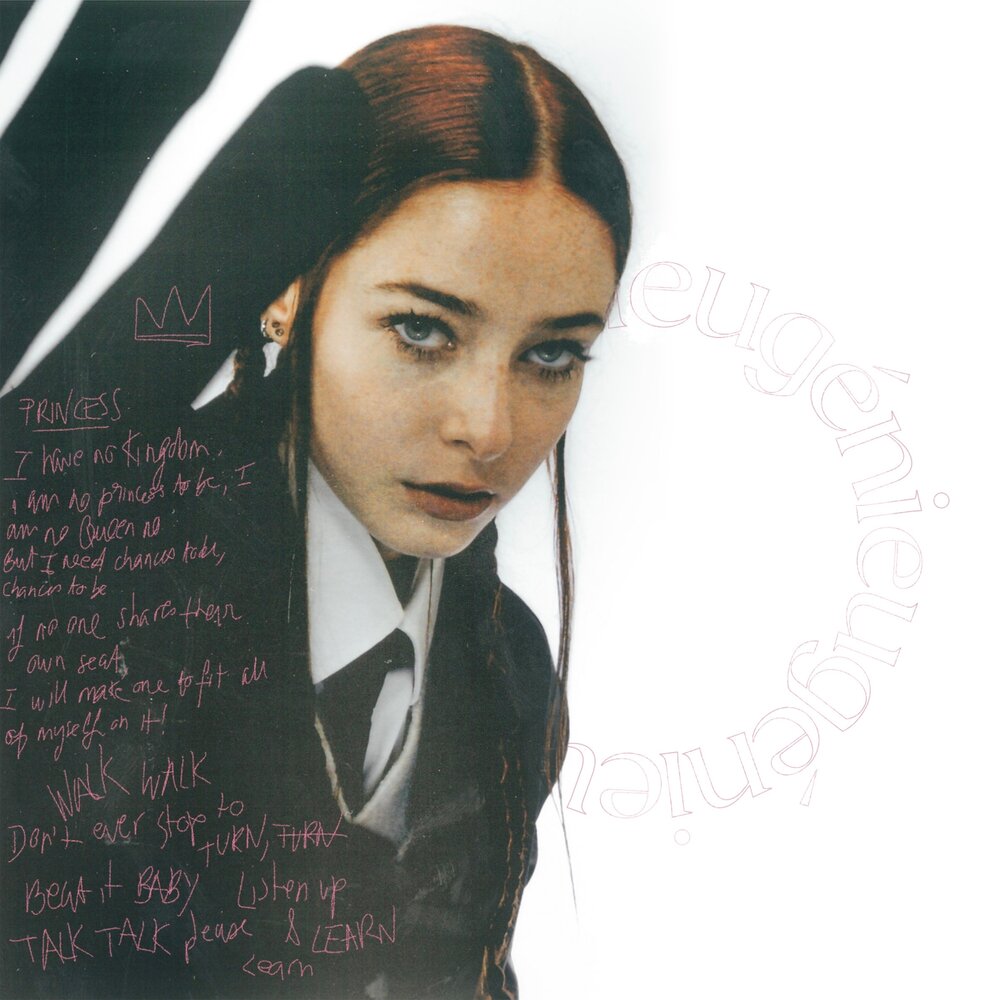 PRINCESS
I have no kingdom,
i am no princess to be, I
am no Queen no
But I need chances to be,
chances to be
if no one shares their
own seat
I will make one to fit all
of myself on it!
WALK WALK
Don't ever stop to
TURN, TURN
Beat it BABY Listen up
TALK TALK please & LEARN
Learn
eugénieugénieugénieu